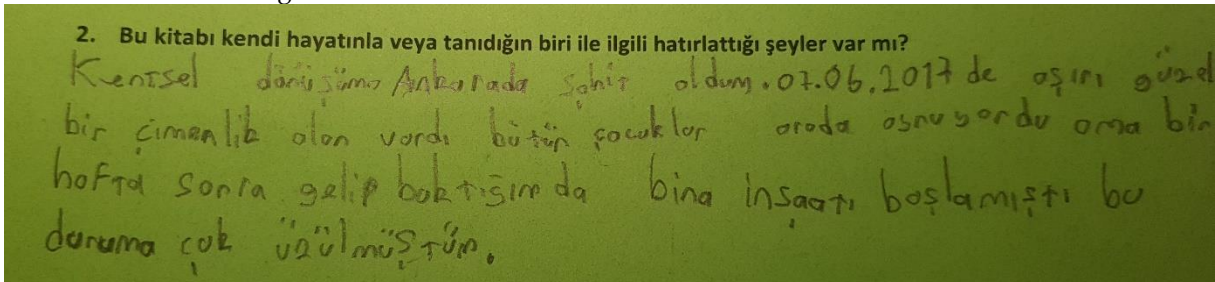 2. Bu kitabı kendi hayatınla veya tanıdığın biri ile ilgili hatırlattığı şeyler var mı?
Kentsel dönüşüme Ankarada şahit oldum. 07.06.2017 de aşırı güzel
bir çimenlik alan vardı bütün çocuklar orada oynuyordu ama bir
hafta sonra gelip baktığımda bina inşaatı başlamıştı bu
duruma çok üzülmüştüm.